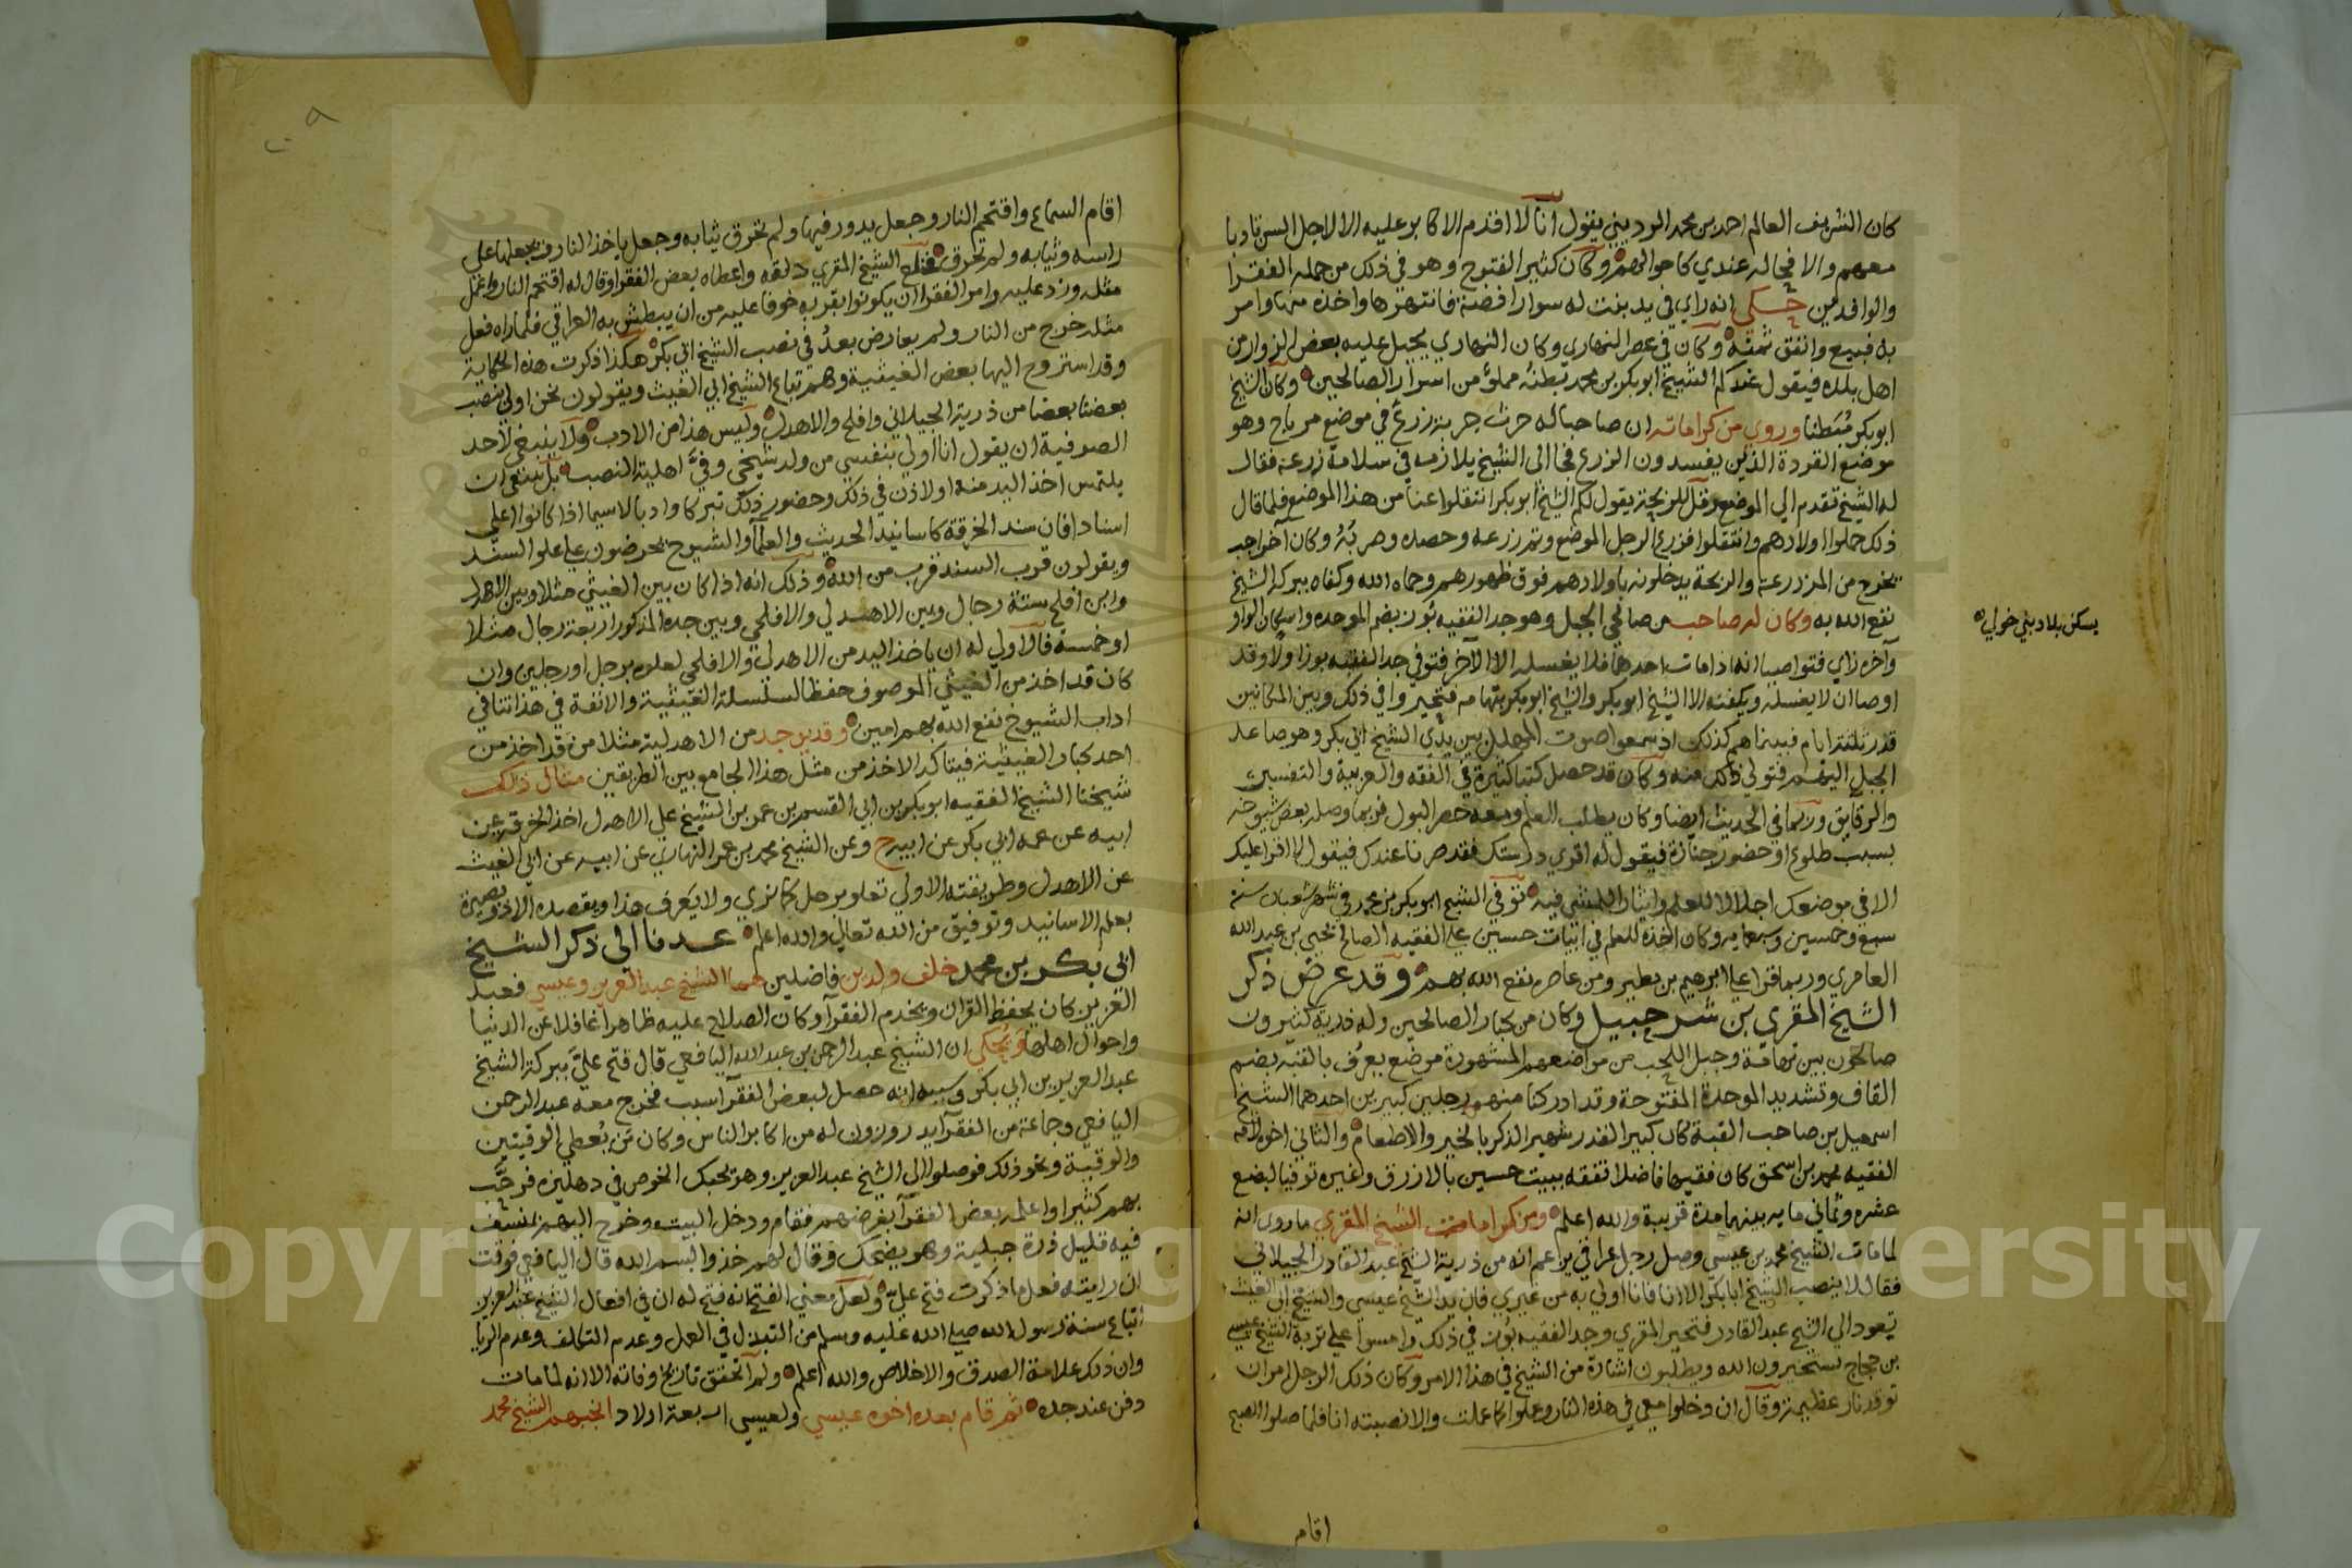 كان الشريف العالم احمد بن محمد الرديني يقول انا لا اقدم الاكابر عليه الا لاجل السن تادبا
معهم والا فحاله عندي كاحوالهم وكان كثير الفتوح وهو في ذلك من جملة الفقرا
والوافدين حكي انه راي في يد بنت له سوارا فضة فانتهرها واخذه منها وامر
به فبيع وانفق ثمنه وكان في عصر النهاري وكان النهاري يحيل عليه بعض الزوار من
اهل بلده فيقول عندكم الشيخ ابو بكر بن محمد بطنه مملؤ من اسرار الصالحين وكان الشيخ
ابو بكر مبطنا وروي من كراماته ان صاحبا له حرث جربة زرع في موضع مرباح وهو
موضع القردة الذين يفسدون الزرع فجا الى الشيخ يلازمه في سلامة زرعه فقال
له الشيخ تقدم الي الموضع وقل للربحة يقول لكم الشيخ ابو بكر انتقلوا عنا من هذا الموضع فلما قال
ذلك حملوا اولادهم وانتقلوا فزرع الرجل الموضع وتم زرعه وحصده وصربه وكان آخر اجب
يخرج من المزرعة والربحة يدخلونه باولادهم فوق ظهورهم وحماه الله وكفاه ببركة الشيخ
نفع الله به وكان له صاحب من صالحي الجبل وهو جد الفقيه بوز بضم الموحده واسكان الواو
وآخره زاي فتواصيا انه اذا مات احدهما فلا يغسله الا الآخر فتوفي جد الفقيه بوز اولا وقد
اوصا ان لا يغسله ويكفنه الا الشيخ ابو بكر والشيخ ابو بكر بتهامه فتحيروا في ذلك وبين المكانين
قدر ثلثة ايام فبينما هم كذلك اذ سمعوا صوت المهلل بين يدي الشيخ ابي بكر وهو صاعد
الجبل اليهم فتولي ذلك منه وكان قد حصل كتبا كثيرة في الفقه والعربية والتفسير
والرقايق وربما في الحديث ايضا وكان يطلب العلم ومعه حصر البول فربما وصله بعض شيوخه
بسبب طلوع او حضور جنازة فيقول له اقري درستك فقد صرنا عندك فيقول لا اقرا عليك
الا في موضعك اجلالا للعلم وايثارا للمشي فيه توفي الشيخ ابو بكر بن محمد في شهر شعبان سنة
سبع وخمسين وسبعمايه وكان اخذه للعلم في ابيات حسين علي الفقيه الصالح يحيي بن عبد الله
العامري وربما قرا علي ابرهيم بن مطير ومن عاصره نفع الله بهم وقد عرض ذكر
الشيخ المقري بن شرحبيل وكان من كبار الصالحين وله ذرية كثيرون
صالحون بين تهامة وجبل اللجب من مواضعهم المشهورة موضع يعرف بالقبة بضم
القاف وتشديد الموحدة المفتوحة وقد ادركنا منهم رجلين كبيرين احدهما الشيخ
اسمعيل بن صاحب القبة كان كبير القدر شهير الذكر بالخير والاطعام والثاني اخوه لامه
الفقيه محمد بن اسحق كان فقيها فاضلا تفقه ببيت حسين بالازرق وغيره توفيا لبضع
عشره وثماني مايه بينهما مدة قريبة والله اعلم ومن كرامات الشيخ المقري ما روي انه
لما مات الشيخ محمد بن عيسي وصل رجل عراقي يزاعم انه من ذرية الشيخ عبد القادر الجيلاني
فقال لا ينصب الشيخ ابا بكر الا انا فانا اولي به من غيري فان يد الشيخ عيسي والشيخ ابي الغيث
تعود الي الشيخ عبد القادر فتحير المقري وجد الفقيه بوز في ذلك وامسوا علي تربة الشيخ عيسي
بن حجاج يستخيرون الله ويطلبون اشارة من الشيخ في هذا الامر وكان ذلك الرجل امر ان
توقد نار عظيمة وقال ان دخلوا معي في هذه النار وعملوا كما عملت والا نصبته انا فلما صلوا الصبح
اقام
يسكن بلاد بني خولي
اقام السماع واقتحم النار وجعل يدور فيها ولم تحرق ثيابه وجعل ياخذ النار فيجعلها علي
راسه وثيابه ولم تحرق فخلع الشيخ المقري دلقه واعطاه بعض الفقرا وقال له اقتحم النار واعمل
مثله وزد عليه وامر الفقرا ان يكونوا بقربه خوفا عليه من ان يبطش به العراقي فلما راه فعل
مثله خرج من النار ولم يعارض بعد في نصب الشيخ ابي بكر هكذا ذكرت هذه الحكاية
وقد استروح اليها بعض الغيثية وهم تباع الشيخ ابي الغيث ويقولون نحن اولي بنصب
بعضنا بعضا من ذرية الجيلاني وافلح والاهدل وليس هذا من الادب ولا ينبغي لاحد
الصوفية ان يقول انا اولي بنفسي من ولد شيخي وفيّ اهلية النصب بل ينبغي ان
يلتمس اخذ اليد منه اولا اذن في ذلك وحضور ذلك تبركا وادبا لاسيما اذا كانوا اعلي
اسنادا فان سند الخرقة كاسانيد الحديث والعلمآ والشيوخ يحرضون علي علو السند
ويقولون قرب السند قرب من الله وذلك انه اذا كان بين الغيثي مثلا وبين الاهدل
وابن افلح ستة رجال وبين الاهدلي والافلحي وبين جده المذكور اربعة رجال مثلا
او خمسة فالاولي له ان ياخذ اليد من الاهدلي والافلحي لعلوه برجل او رجلين وان
كان قد اخذ من الغيثي الموصوف حفظا لسلسلة الغيثية والانفة في هذا تنافي
اداب الشيوخ نفع الله بهم امين وقد يوجد من الاهدلية مثلا من قد اخذ من
احد كبار الغيثية فيتاكد الاخذ من مثل هذا الجامع بين الطريقين مثال ذلك
شيخنا الشيخ الفقيه ابو بكر بن ابي القسم بن عمر بن الشيخ علي الاهدل اخذ الخرقه عن
ابيه عن عمه ابي بكر عن ابيه ح وعن الشيخ محمد بن عمر النهاري عن ابيه عن ابي الغيث
عن الاهدل وطريقته الاولي تعلو برجل كما تري ولا يعرف هذا ويقصده الا ذو بصيرة
بعلم الاسانيد وتوفيق من الله تعالي والله اعلم عدنا الى ذكر الشيخ
ابي بكر بن محمد خلف ولدين فاضلين هما الشيخ عبد العزيز وعيسي فعبد
العزيز كان يحفظ القران ويخدم الفقرآ وكان الصلاح عليه ظاهرا غافلا عن الدنيا
واحوال اهلها ويحكي ان الشيخ عبد الرحمن بن عبد الله اليافعي قال فتح عليّ ببركة الشيخ
عبد العزيز بن ابي بكر وسببه انه حصل لبعض الفقرآ سبب فخرج معه عبد الرحمن
اليافعي وجماعة من الفقرآ يدروزون له من اكابر الناس وكان من يعطي الوقيتين
والوقية ونحو ذلك فوصلوا الى الشيخ عبد العزيز وهو يحبك الخوص في دهليزه فرحّب
بهم كثيرا واعلمه بعض الفقرآ بغرضهم فقام ودخل البيت وخرج اليهم بمنسف
فيه قليل ذرة جبلية وهو يضحك وقال لهم خذوا بسم الله قال اليافعي فوقت
ان رايته فعل ما ذكرت فتح عليّ ولعل معني الفتح انه فتح له ان في افعال الشيخ عبد العزيز
اتباع سنة رسول الله صلي الله عليه وسلم من التبذل في العمل وعدم التكلف وعدم الريا
وان ذلك علامة الصدق والاخلاص والله اعلم ولم اتحقق تاريخ وفاته الا انه لما مات
دفن عند جده ثم قام بعده اخوه عيسي ولعيسي اربعة اولاد انجبهم الشيخ محمد
Copyright © King Saud University